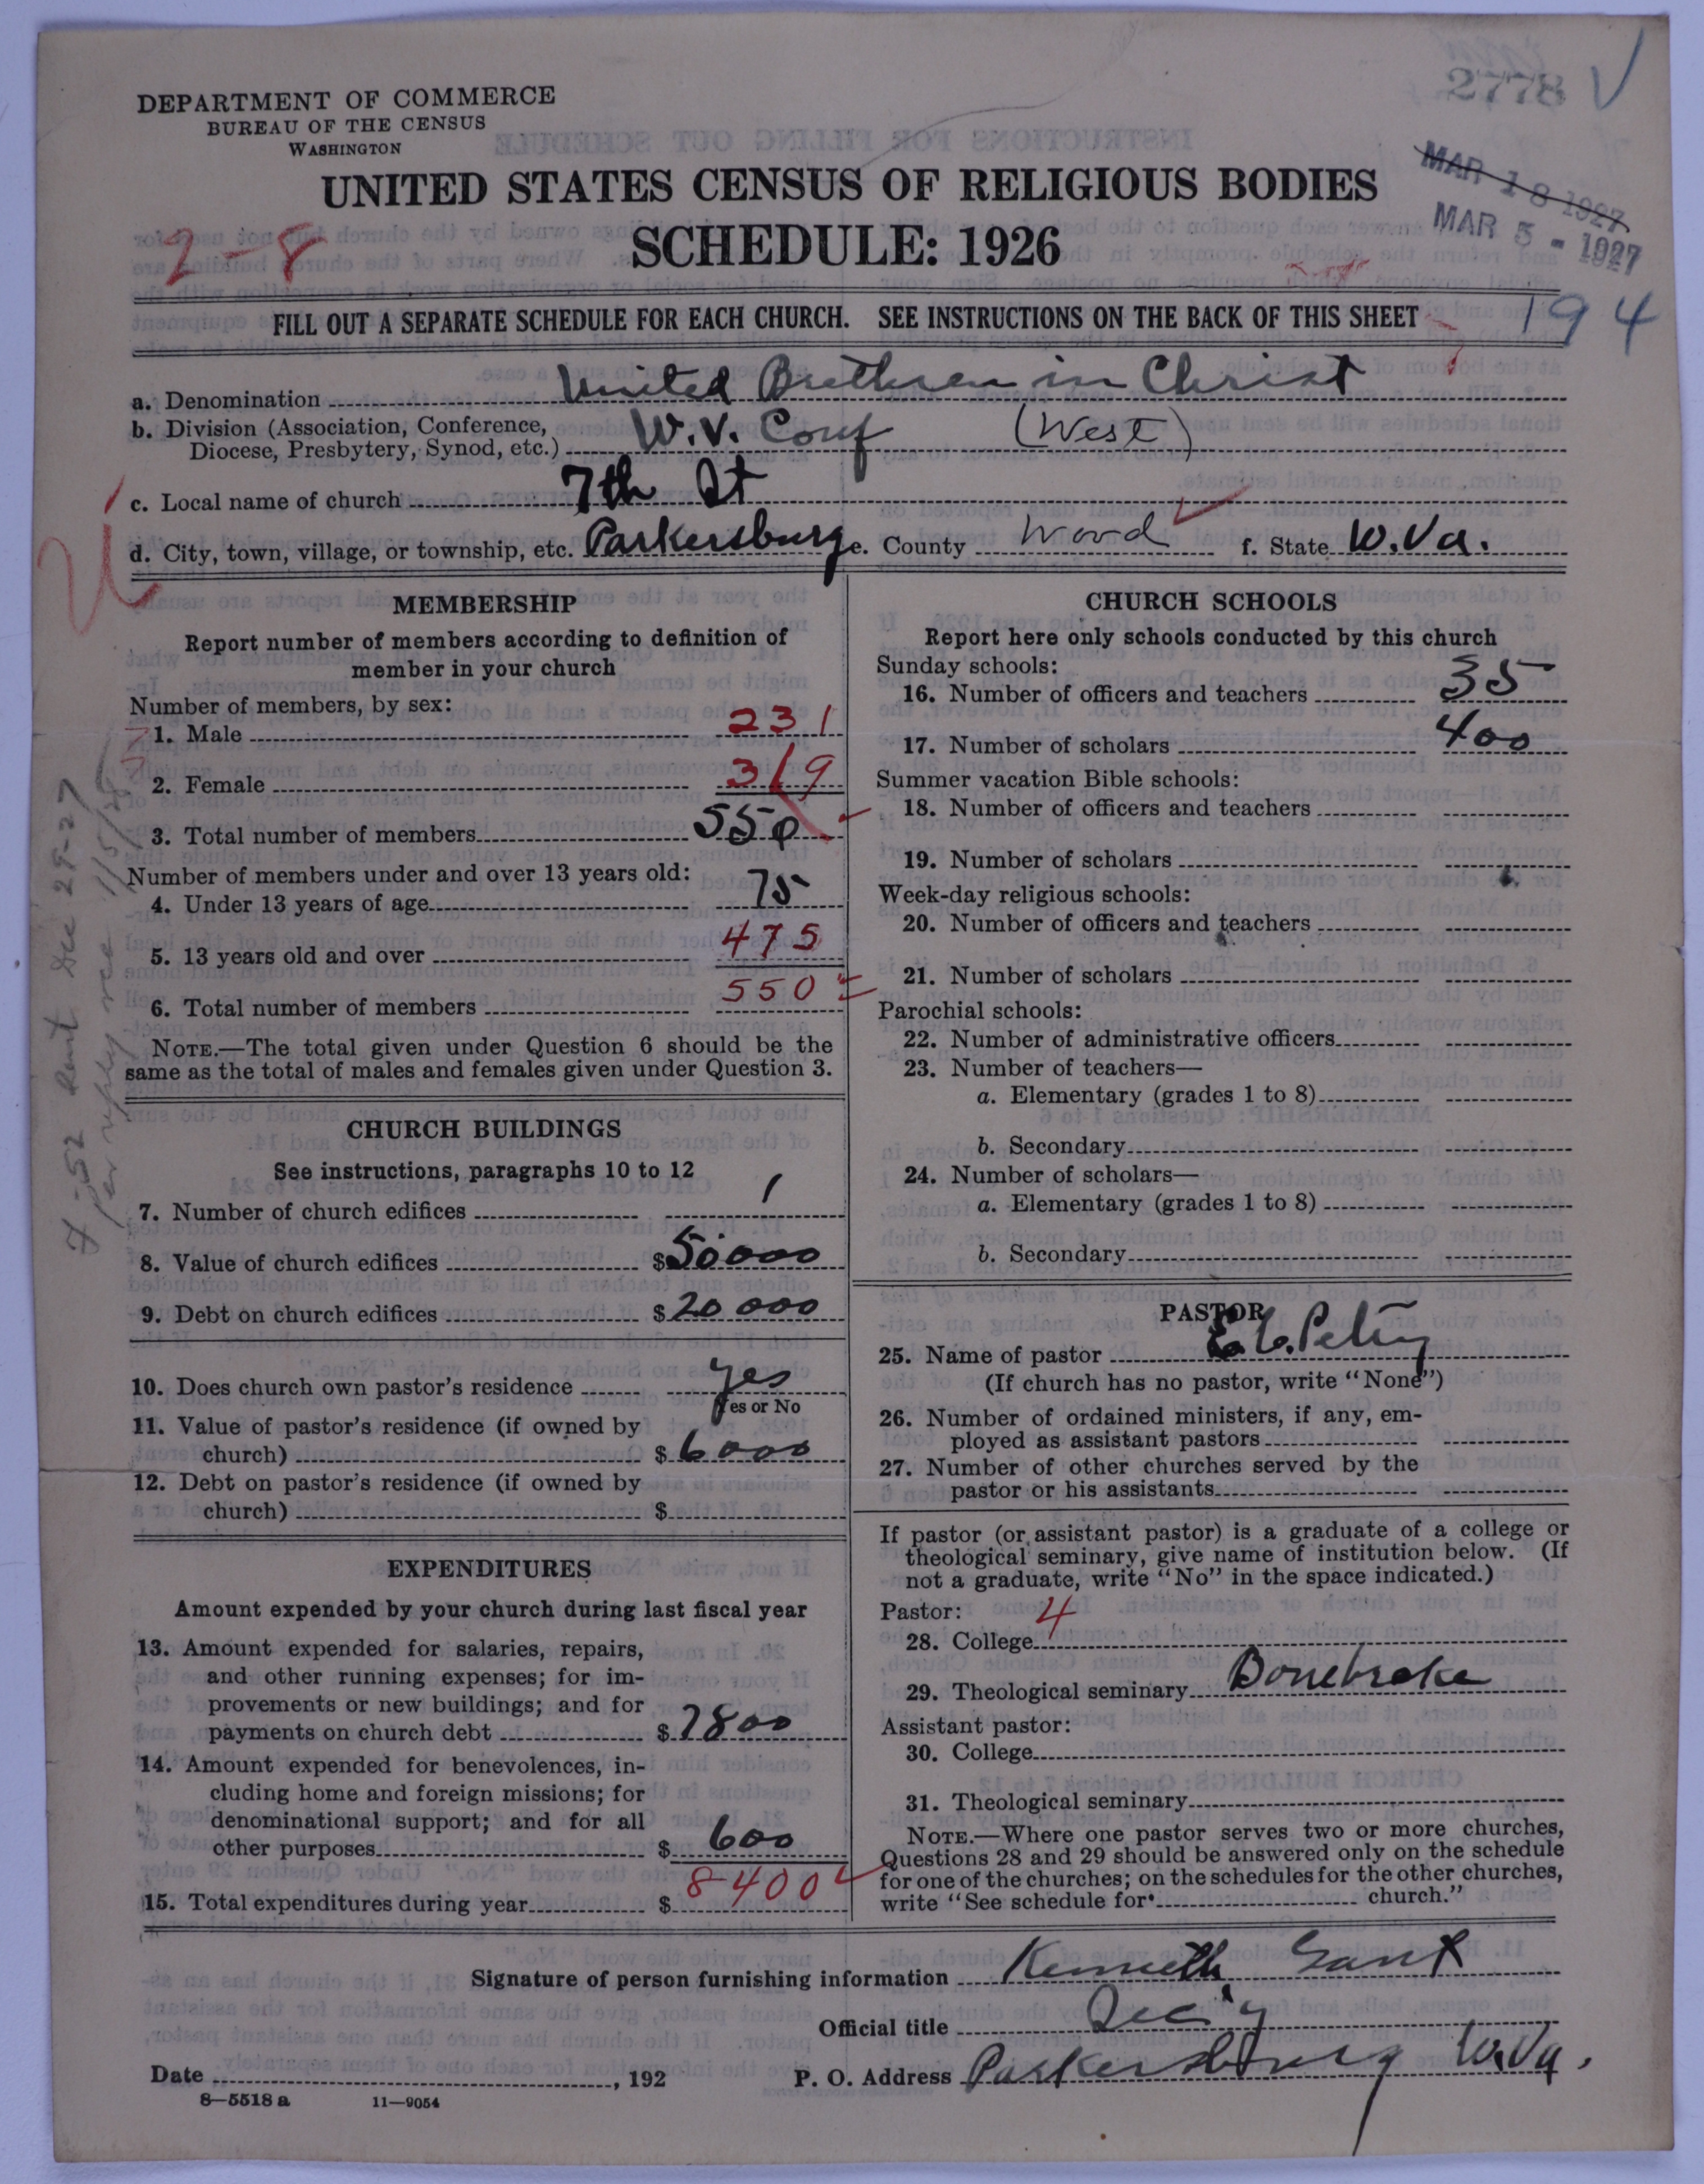 2778
DEPARTMENT OF COMMERCE
BUREAU OF THE CENSUS
WASHINGTON
UNITED STATES CENSUS OF RELIGIOUS BODIES
SCHEDULE: 1926
MAR 18 1927
MAR 5 - 1927
2-8
194
FILL OUT A SEPARATE SCHEDULE FOR EACH CHURCH. SEE INSTRUCTIONS ON THE BACK OF THIS SHEET
a. Denomination United Brethren in Christ
b. Division (Association, Conference, Diocese, Presbytery, Synod, etc.) W.V. Conf (West)
c. Local name of church 7th St
d. City, town, village, or township, etc. Parkersburg e. County Wood f. State W.Va.
MEMBERSHIP
Report number of members according to definition of
member in your church
Number of members, by sex:
1. Male 231
2. Female 319
3. Total number of members 550
Number of members under and over 13 years old:
4. Under 13 years of age 75
5. 13 years old and over 475
6. Total number of members 550
NOTE.—The total given under Question 6 should be the
same as the total of males and females given under Question 3.
CHURCH BUILDINGS
See instructions, paragraphs 10 to 12
7. Number of church edifices 1
8. Value of church edifices $50000
9. Debt on church edifices $20000
10. Does church own pastor's residence yes
Yes or No
11. Value of pastor's residence (if owned by
church) $6000
12. Debt on pastor's residence (if owned by
church) $
EXPENDITURES
Amount expended by your church during last fiscal year
13. Amount expended for salaries, repairs,
and other running expenses; for im-
provements or new buildings; and for
payments on church debt $7800
14. Amount expended for benevolences, in-
cluding home and foreign missions; for
denominational support; and for all
other purposes $600
15. Total expenditures during year $8400
CHURCH SCHOOLS
Report here only schools conducted by this church
Sunday schools:
16. Number of officers and teachers 35
17. Number of scholars 400
Summer vacation Bible schools:
18. Number of officers and teachers
19. Number of scholars
Week-day religious schools:
20. Number of officers and teachers
21. Number of scholars
Parochial schools:
22. Number of administrative officers
23. Number of teachers—
a. Elementary (grades 1 to 8)
b. Secondary
24. Number of scholars—
a. Elementary (grades 1 to 8)
b. Secondary
PASTOR
25. Name of pastor E. C. Petry
(If church has no pastor, write "None")
26. Number of ordained ministers, if any, em-
ployed as assistant pastors
27. Number of other churches served by the
pastor or his assistants
If pastor (or assistant pastor) is a graduate of a college or
theological seminary, give name of institution below. (If
not a graduate, write "No" in the space indicated.)
Pastor: 4
28. College
29. Theological seminary Bonebrake
Assistant pastor:
30. College
31. Theological seminary
NOTE.—Where one pastor serves two or more churches,
Questions 28 and 29 should be answered only on the schedule
for one of the churches; on the schedules for the other churches,
write "See schedule for church."
Signature of person furnishing information Kenneth Gant
Official title Sec'y
Date , 192 P. O. Address Parkersburg W.Va.
8-5518 a 11-9054